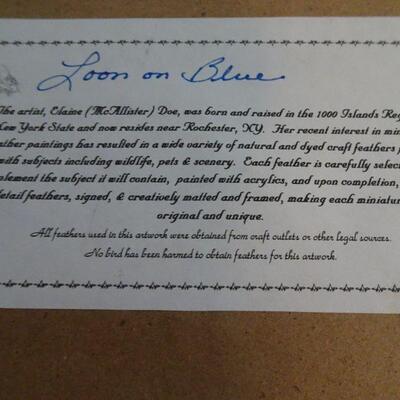 Loon on Blue
The artist, Elaine (McAllister) Doe, was born and raised in the 1000 Islands
New York State and now resides near Rochester, NY. Her recent interest in
paintings has resulted in a wide variety of natural and dyed craft feathers
with subjects including wildlife, pets & scenery. Each feather is carefully
the subject it will contain, painted with acrylics, and upon completion,
feathers, signed, & creatively matted and framed, making each
original and unique.
All feathers used in this artwork were obtained from craft outlets or other legal sources.
No bird has been harmed to obtain feathers for this artwork.